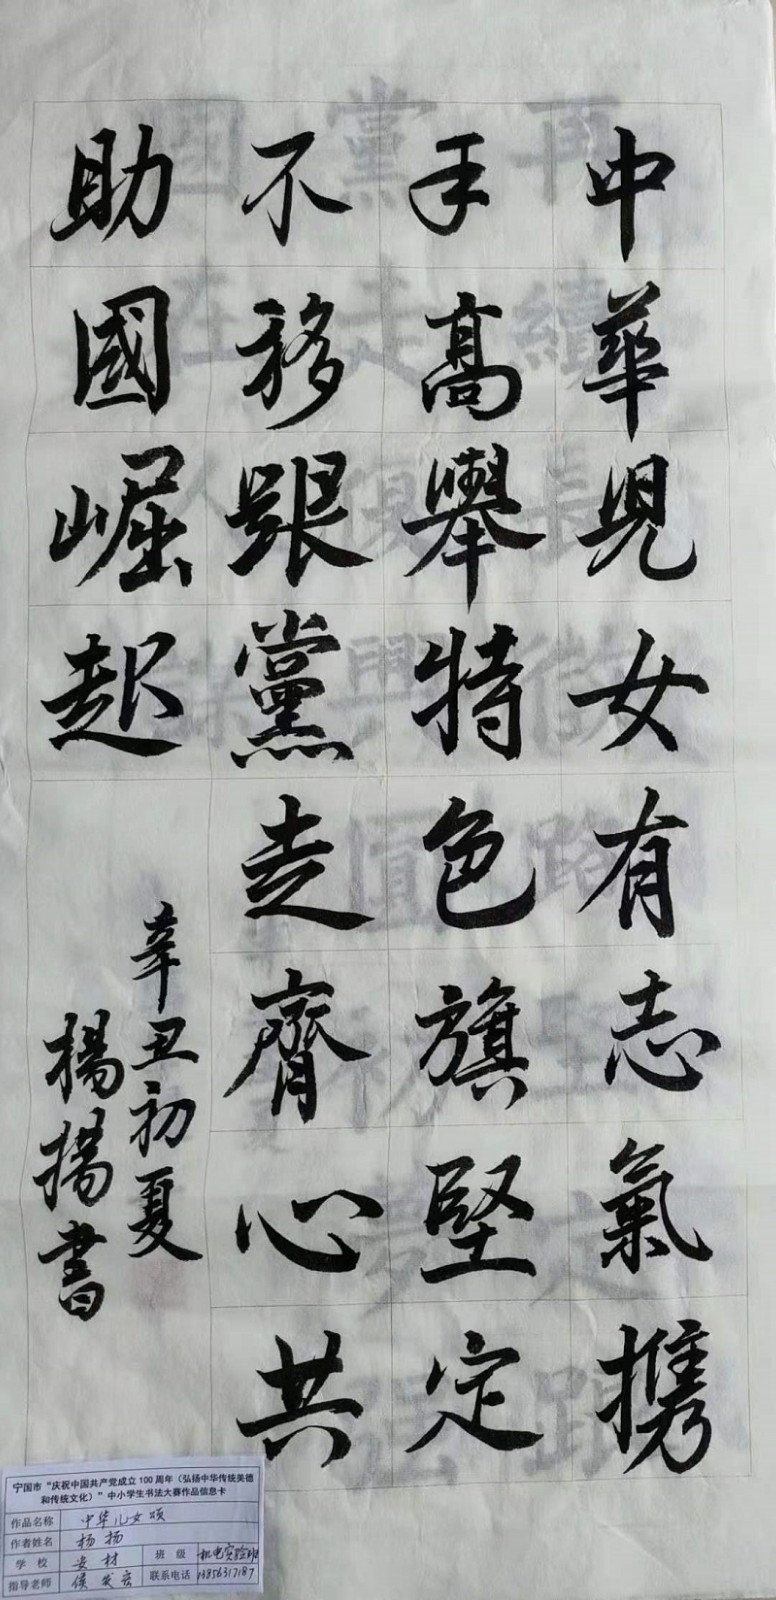 中華児女有志氣携
手高舉特色旗堅定
不移跟黨走齊心共
助國崛起
辛丑初夏
楊揚書
宁国市“庆祝中国共产党成立100周年（弘扬中华传统美德
和传统文化）”中小学生书法大赛作品信息卡
作品名称 中华儿女颂
作者姓名 杨扬
学 校 安材 班 级 机电实验班
指导老师 侯发宏 联系电话 13856317187